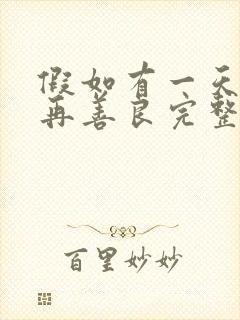 假如有一天
再善良完整
百里妙妙